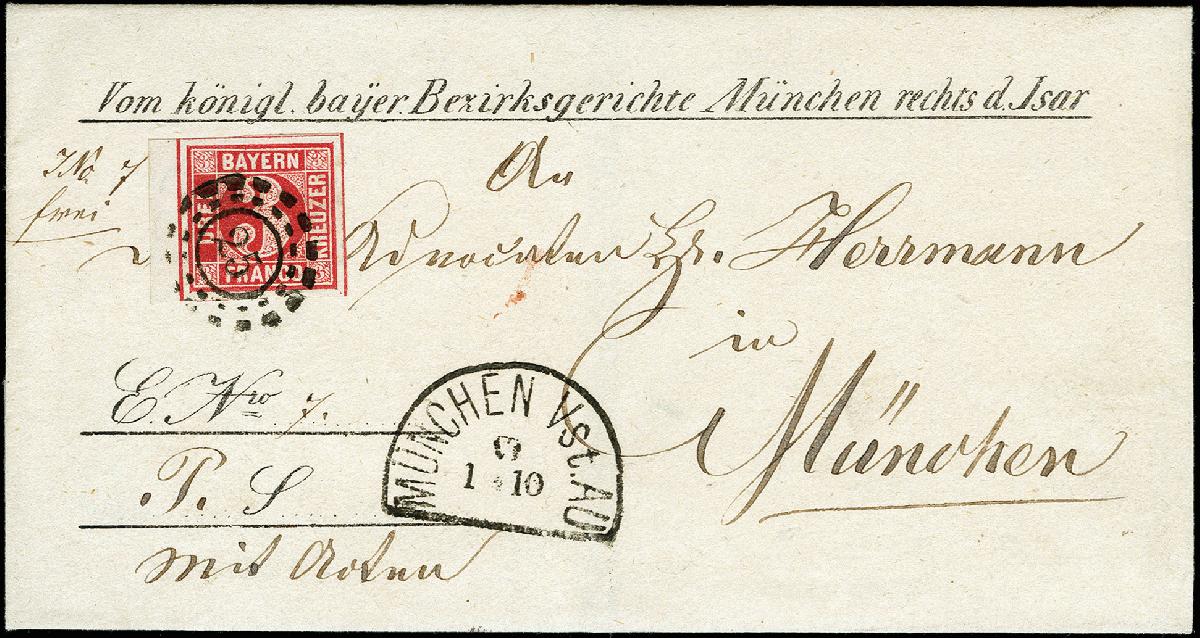 Vom königl. bayer. Bezirksgerichte München rechts d. Isar
No 7
frei
BAYERN
DREI
KREUZER
FRANCO
3
An
Advocaten Hr. Herrmann
in
München
E. Nro 7.
P. S
mit Acten
MÜNCHEN Vst. AU
1 10